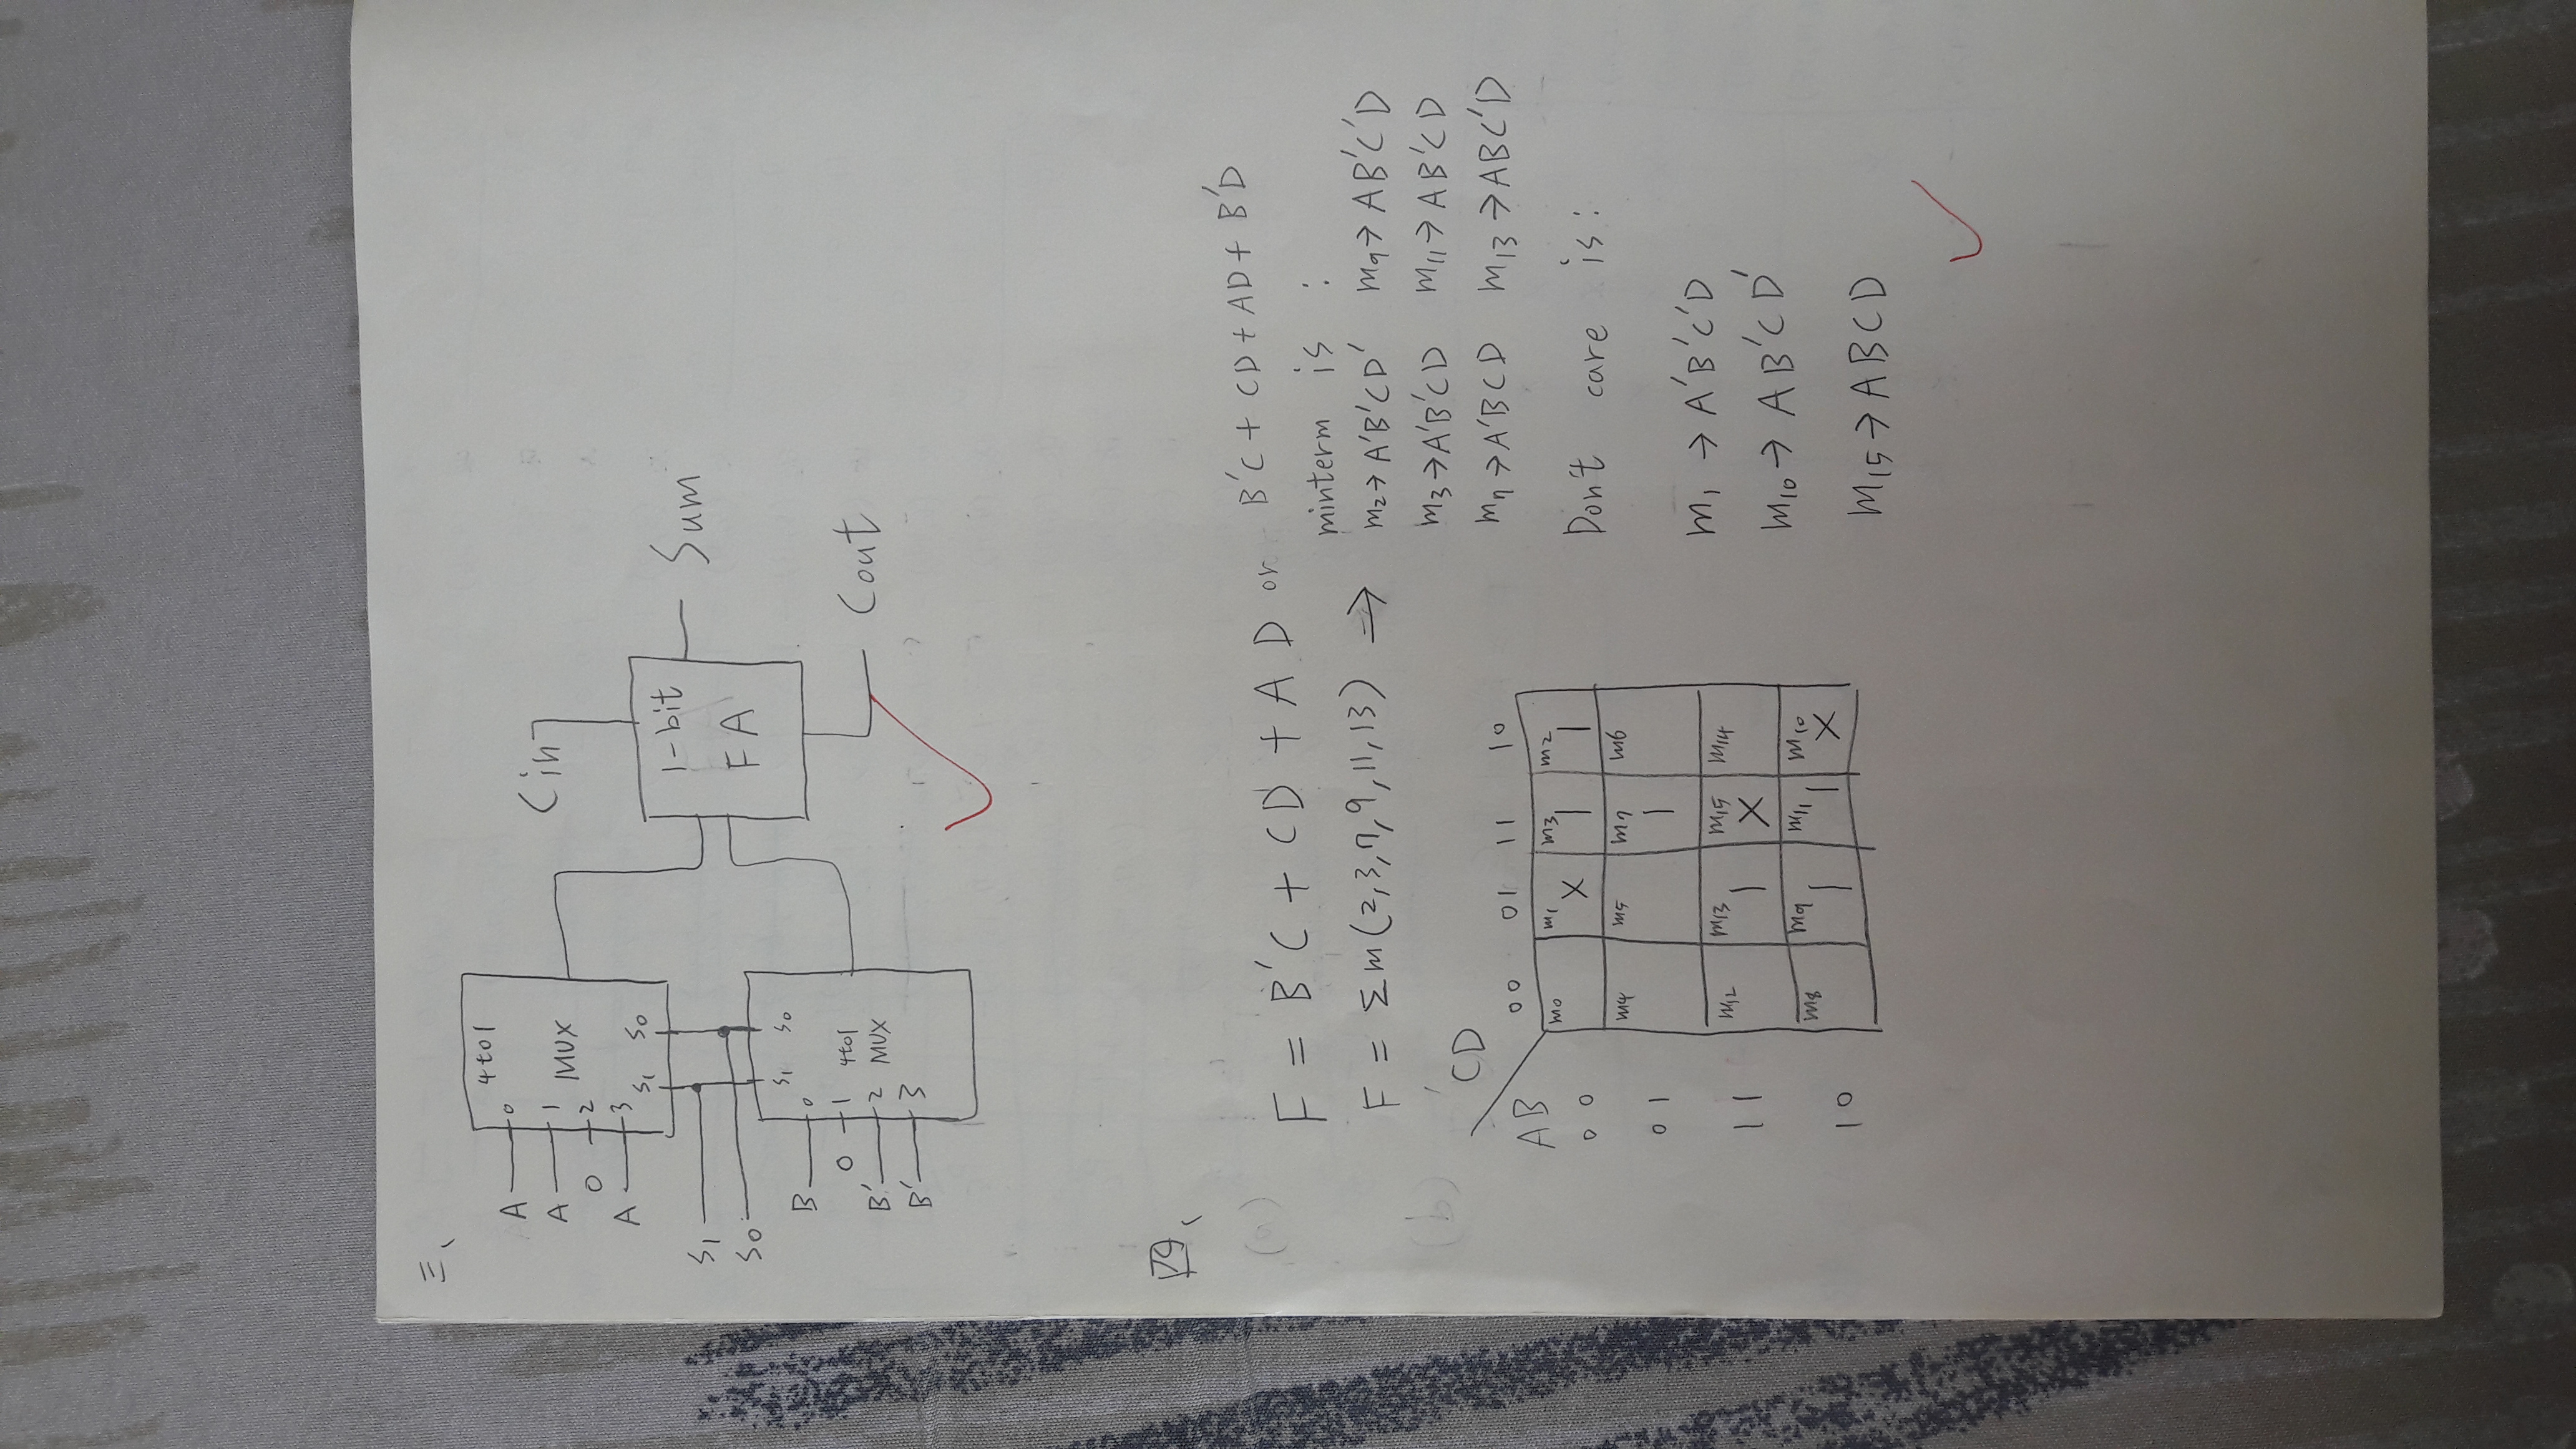 三、
4to1
MUX
A 0
A 1
0 2
A 3
S1 S0
S1
S0
S1 S0
B 0
0 1
B' 2
B' 3
4to1
MUX
Cin
1-bit
FA
Sum
Cout
四、
(a)
F = B'C + CD + AD or B'C + CD + AD + B'D
minterm is :
F = Σm(2,3,7,9,11,13) ⇒
m2→A'B'CD' m9→AB'C'D
m3→A'B'CD m11→AB'CD
m7→A'BCD m13→ABC'D
(b)
CD
AB
00 01 11 10
00 m0 m1 X m3 1 m2 1
01 m4 m5 m7 1 m6
11 m12 m13 1 m15 X m14
10 m8 m9 1 m11 1 m10 X
Don't care is:
m1 → A'B'C'D
m10 → AB'CD'
m15 → ABCD